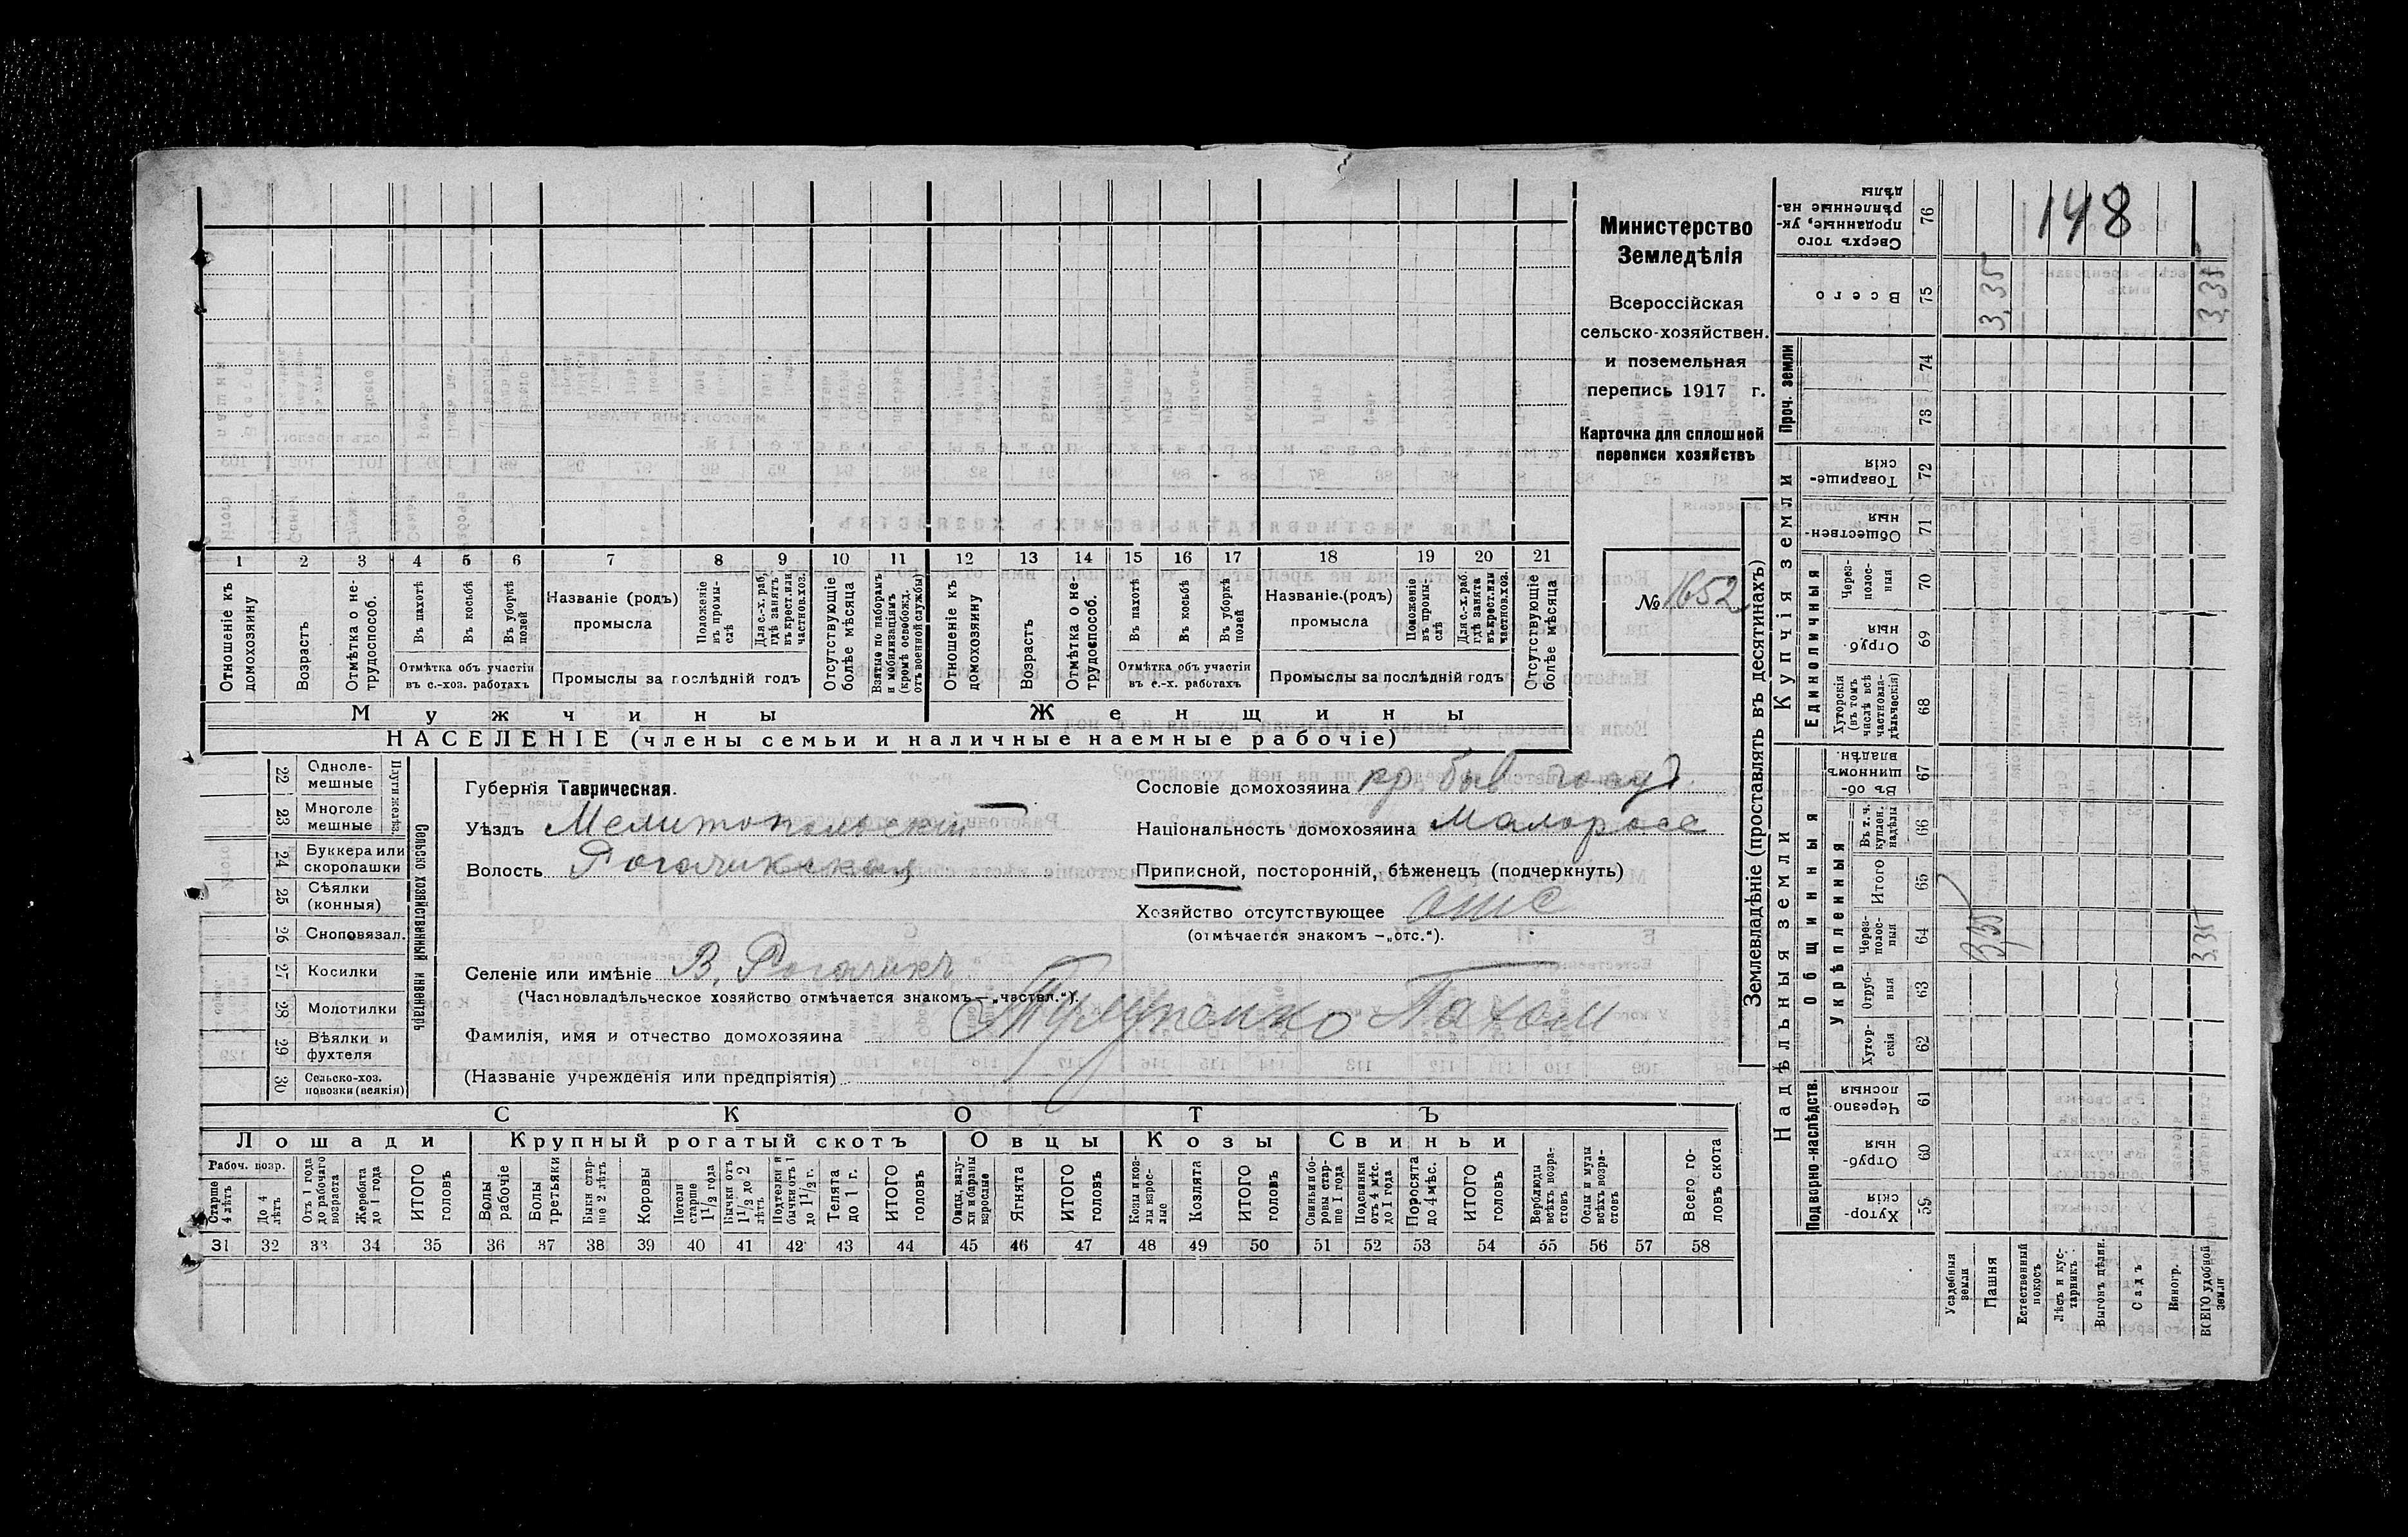 148
Министерство
Земледѣлія
Всероссійская
сельско-хозяйствен.
и поземельная
перепись 1917 г.
Карточка для сплошной
переписи хозяйствъ
№ 1652
1 2 3 4 5 6 7 8 9 10 11 12 13 14 15 16 17 18 19 20 21
Отношеніе къ домохозяину
Возрастъ
Отмѣтка о не-трудоспособ.
Въ пахотѣ
Въ косьбѣ
Въ уборкѣ полей
Отмѣтка объ участіи
въ с.-хоз. работахъ
Названіе (родъ)
промысла
Положеніе въ промы-слѣ
Для с.-х. раб. гдѣ занятъ въ крест. или частнов. хоз.
Промыслы за послѣдній годъ
Отсутствующіе болѣе мѣсяца
Взятые по наборамъ и мобилизаціямъ (кромѣ освобожд. отъ военной службы)
Отношеніе къ домохозяину
Возрастъ
Отмѣтка о не-трудоспособ.
Въ пахотѣ
Въ косьбѣ
Въ уборкѣ полей
Отмѣтка объ участіи
въ с.-х. работахъ
Названіе (родъ)
промысла
Положеніе въ промы-слѣ
Для с.-х. раб. гдѣ занята въ крест. или частнов. хоз.
Промыслы за послѣдній годъ
Отсутствующіе болѣе мѣсяца
Мужчины
Женщины
НАСЕЛЕНІЕ (члены семьи и наличные наемные рабочіе)
Сельско хозяйственный инвентарь
22 Одноле-мешные
23 Многоле мешные
24 Буккера или скоропашки
25 Сѣялки (конныя)
26 Сноповязал.
27 Косилки
28 Молотилки
29 Вѣялки и фухтеля
30 Сельско-хоз. повозки (всякія)
Губернія Таврическая.
Уѣздъ Мелитопольскій
Волость Рогачикская
Селеніе или имѣніе В. Рогачикъ
(Частновладѣльческое хозяйство отмѣчается знакомъ—„частвл.“).
Фамилія, имя и отчество домохозяина Пахом
(Названіе учрежденія или предпріятія)
Сословіе домохозяина кр. быв.
Національность домохозяина Малоросс
Приписной, посторонній, бѣженецъ (подчеркнуть)
Хозяйство отсутствующее отс
(отмѣчается знакомъ —„отс.“).
СКОТЪ
Лошади
Крупный рогатый скотъ
Овцы
Козы
Свиньи
Рабоч. возр.
Старше 4 лѣтъ
До 4 лѣтъ
Отъ 1 года до рабочаго возраста
Жеребята до 1 года
ИТОГО головъ
Волы рабочіе
Волы третьяки
Быки стар-ше 2 лѣтъ
Коровы
Нетели старше 1½ года
Бычки отъ 1½ до 2 лѣтъ
Подтелки и бычки отъ 1 до 1½ г.
Телята до 1 г.
ИТОГО головъ
Овцы, валу-хи и бараны взрослые
Ягнята
ИТОГО головъ
Козы и коз-лы взрос-лые
Козлята
ИТОГО головъ
Свиньи и бо-ровы стар-ше 1 года
Подсвинки отъ 4 мѣс. до 1 года
Поросята до 4 мѣс.
ИТОГО головъ
Верблюды всѣхъ возра-стовъ
Ослы и мулы всѣхъ возра-стовъ
Всего го-ловъ скота
31 32 33 34 35 36 37 38 39 40 41 42 43 44 45 46 47 48 49 50 51 52 53 54 55 56 57 58
Землевладѣніе (проставлять въ десятинахъ)
Надѣльныя земли
Купчія земли
Проч. земли
Подворно-наслѣдств.
Общинныя
Укрѣпленныя
Единоличныя
Сверхъ того проданные, ук-рѣпленные на-дѣлы 76
Всего 75 3,35 3,35
74
73
Товарище-скія 72
Обществен-ныя 71
Через-полос-ныя 70
Отруб-ныя 69
Хуторскія (въ томъ числѣ всѣ частновла-дѣльческія) 68
Въ об-щинномъ владѣн. 67
Въ т. ч. куплен. надѣлы 66
Итого 65
Через-полос-ныя 64 3,35 3,35
Отруб-ныя 63
Хутор-скія 62
Черезпо-лосныя 61
Отруб-ныя 60
Хутор-скія 59
Усадебныя земли
Пашня
Естественный покосъ
Лѣсъ и кус-тарникъ
Выгонъ дѣлян.
Садъ
Виногр.
ВСЕГО удобной земли